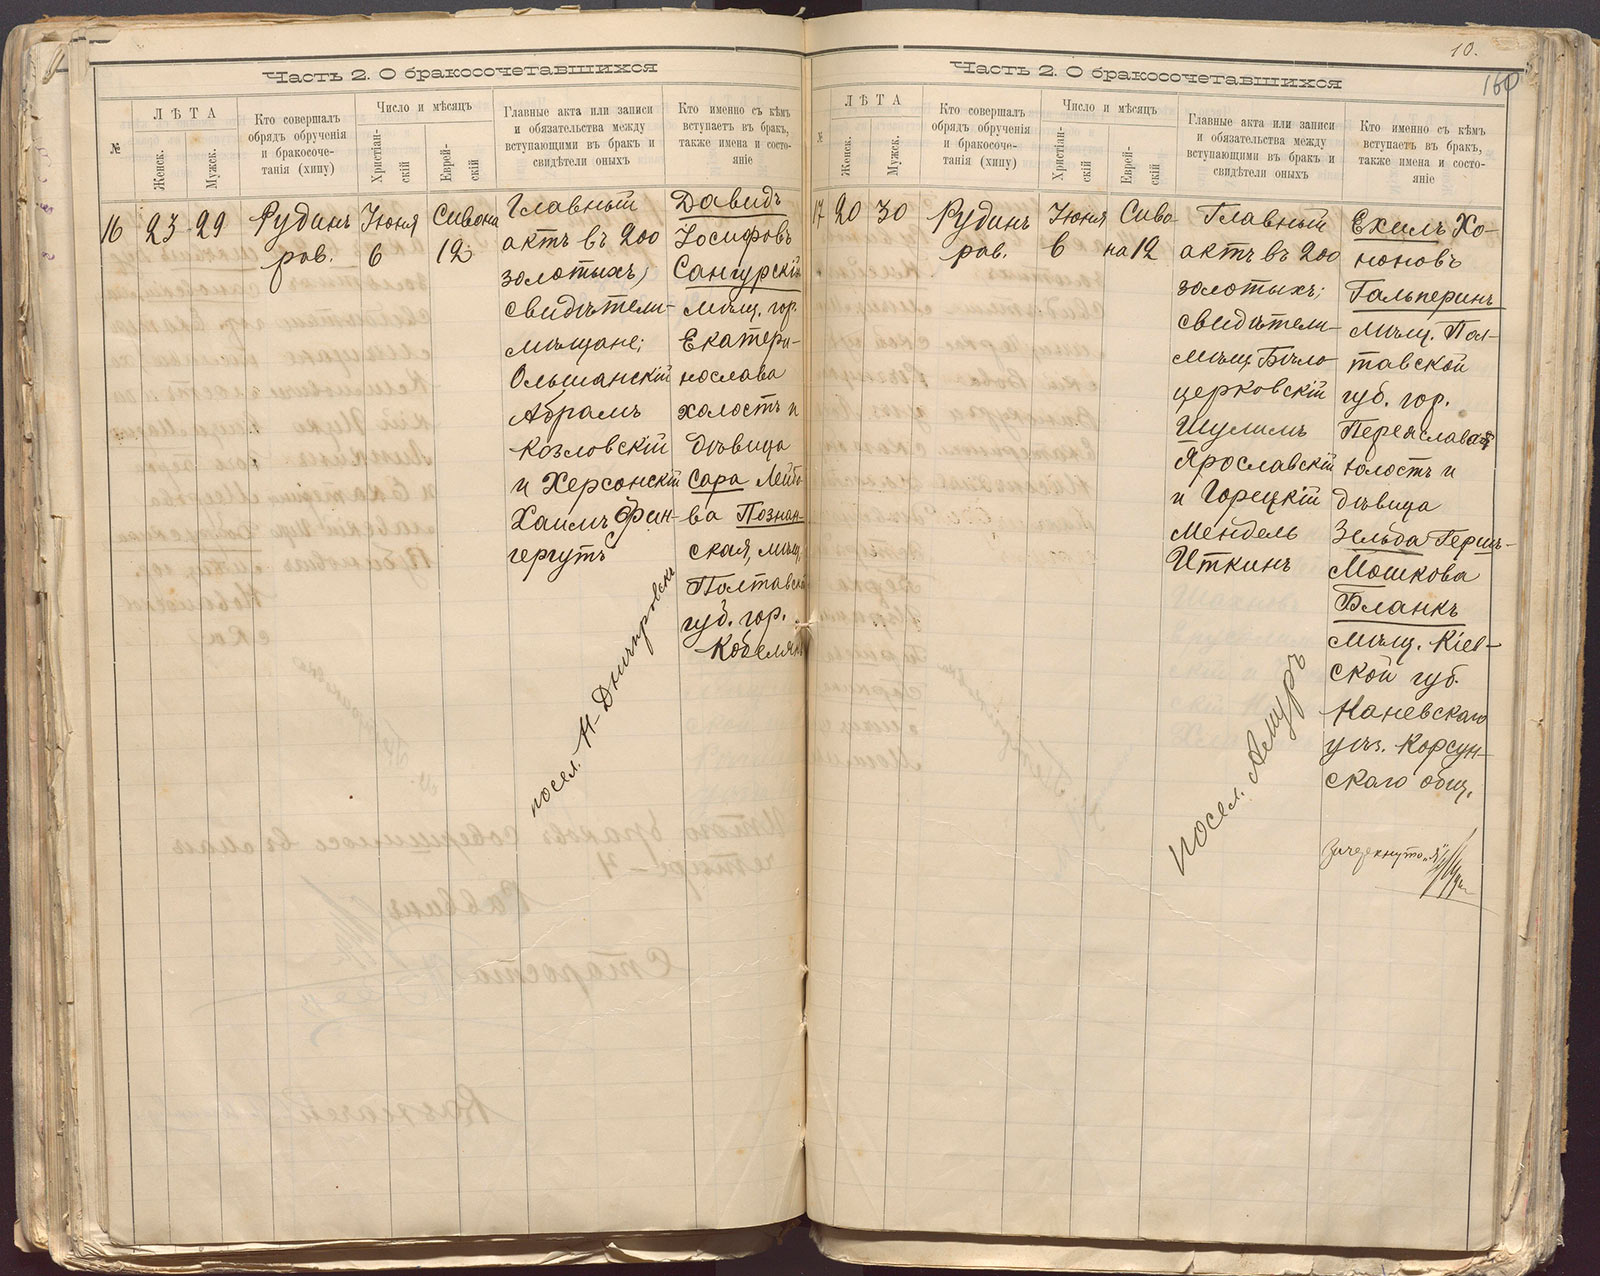 Часть 2. О бракосочетавшихся
№
ЛѢТА
Женск.
Мужск.
Кто совершалъ
обрядъ обрученія
и бракосоче-
танія (хипу)
Число и мѣсяцъ
Христіан-
скій
Еврей-
скій
Главные акта или записи
и обязательства между
вступающими въ бракъ и
свидѣтели оныхъ
Кто именно съ кѣмъ
вступаетъ въ бракъ,
также имена и состо-
яніе
16
23
29
Рудинъ
рав.
Іюня
6
Сивона
12
Главный
актъ въ 200
золотыхъ;
свидѣтели-
мѣщане;
Ольшанскій
Абрамъ
Козловскій
и Херсонскій
Хаимъ Фин-
гергутъ
посел. Н-Днѣпровскъ
Давидъ
Іосифовъ
Сангурскій
мѣщ. гор.
Екатери-
нослава
холостъ и
дѣвица
Сара Лейбо
ва Познан-
ская, мѣщ.
Полтавск
губ. гор.
Кобелякъ
10.
160
Часть 2. О бракосочетавшихся
№
ЛѢТА
Женск.
Мужск.
Кто совершалъ
обрядъ обрученія
и бракосоче-
танія (хипу)
Число и мѣсяцъ
Христіан-
скій
Еврей-
скій
Главные акта или записи
и обязательства между
вступающими въ бракъ и
свидѣтели оныхъ
Кто именно съ кѣмъ
вступаетъ въ бракъ,
также имена и состо-
яніе
17
20
30
Рудинъ
рав.
Іюня
6
Сиво
на 12
Главный
актъ въ 200
золотыхъ;
свидѣтели-
мѣщ. Бѣло
церковскій
Шулимъ
Ярославскій
и Горецкій
Мендель
Иткинъ
посел. Амуръ
Ехилъ Хо-
ноновъ
Гальперинъ
мѣщ. Пол-
тавской
губ. гор.
Переяслава
холостъ и
дѣвица
Зельда Герш-
Мошкова
Бланкъ
мѣщ. Кіев-
ской губ.
Каневскаго
уѣз. Корсун-
скаго общ.
Зачеркнуто „я"